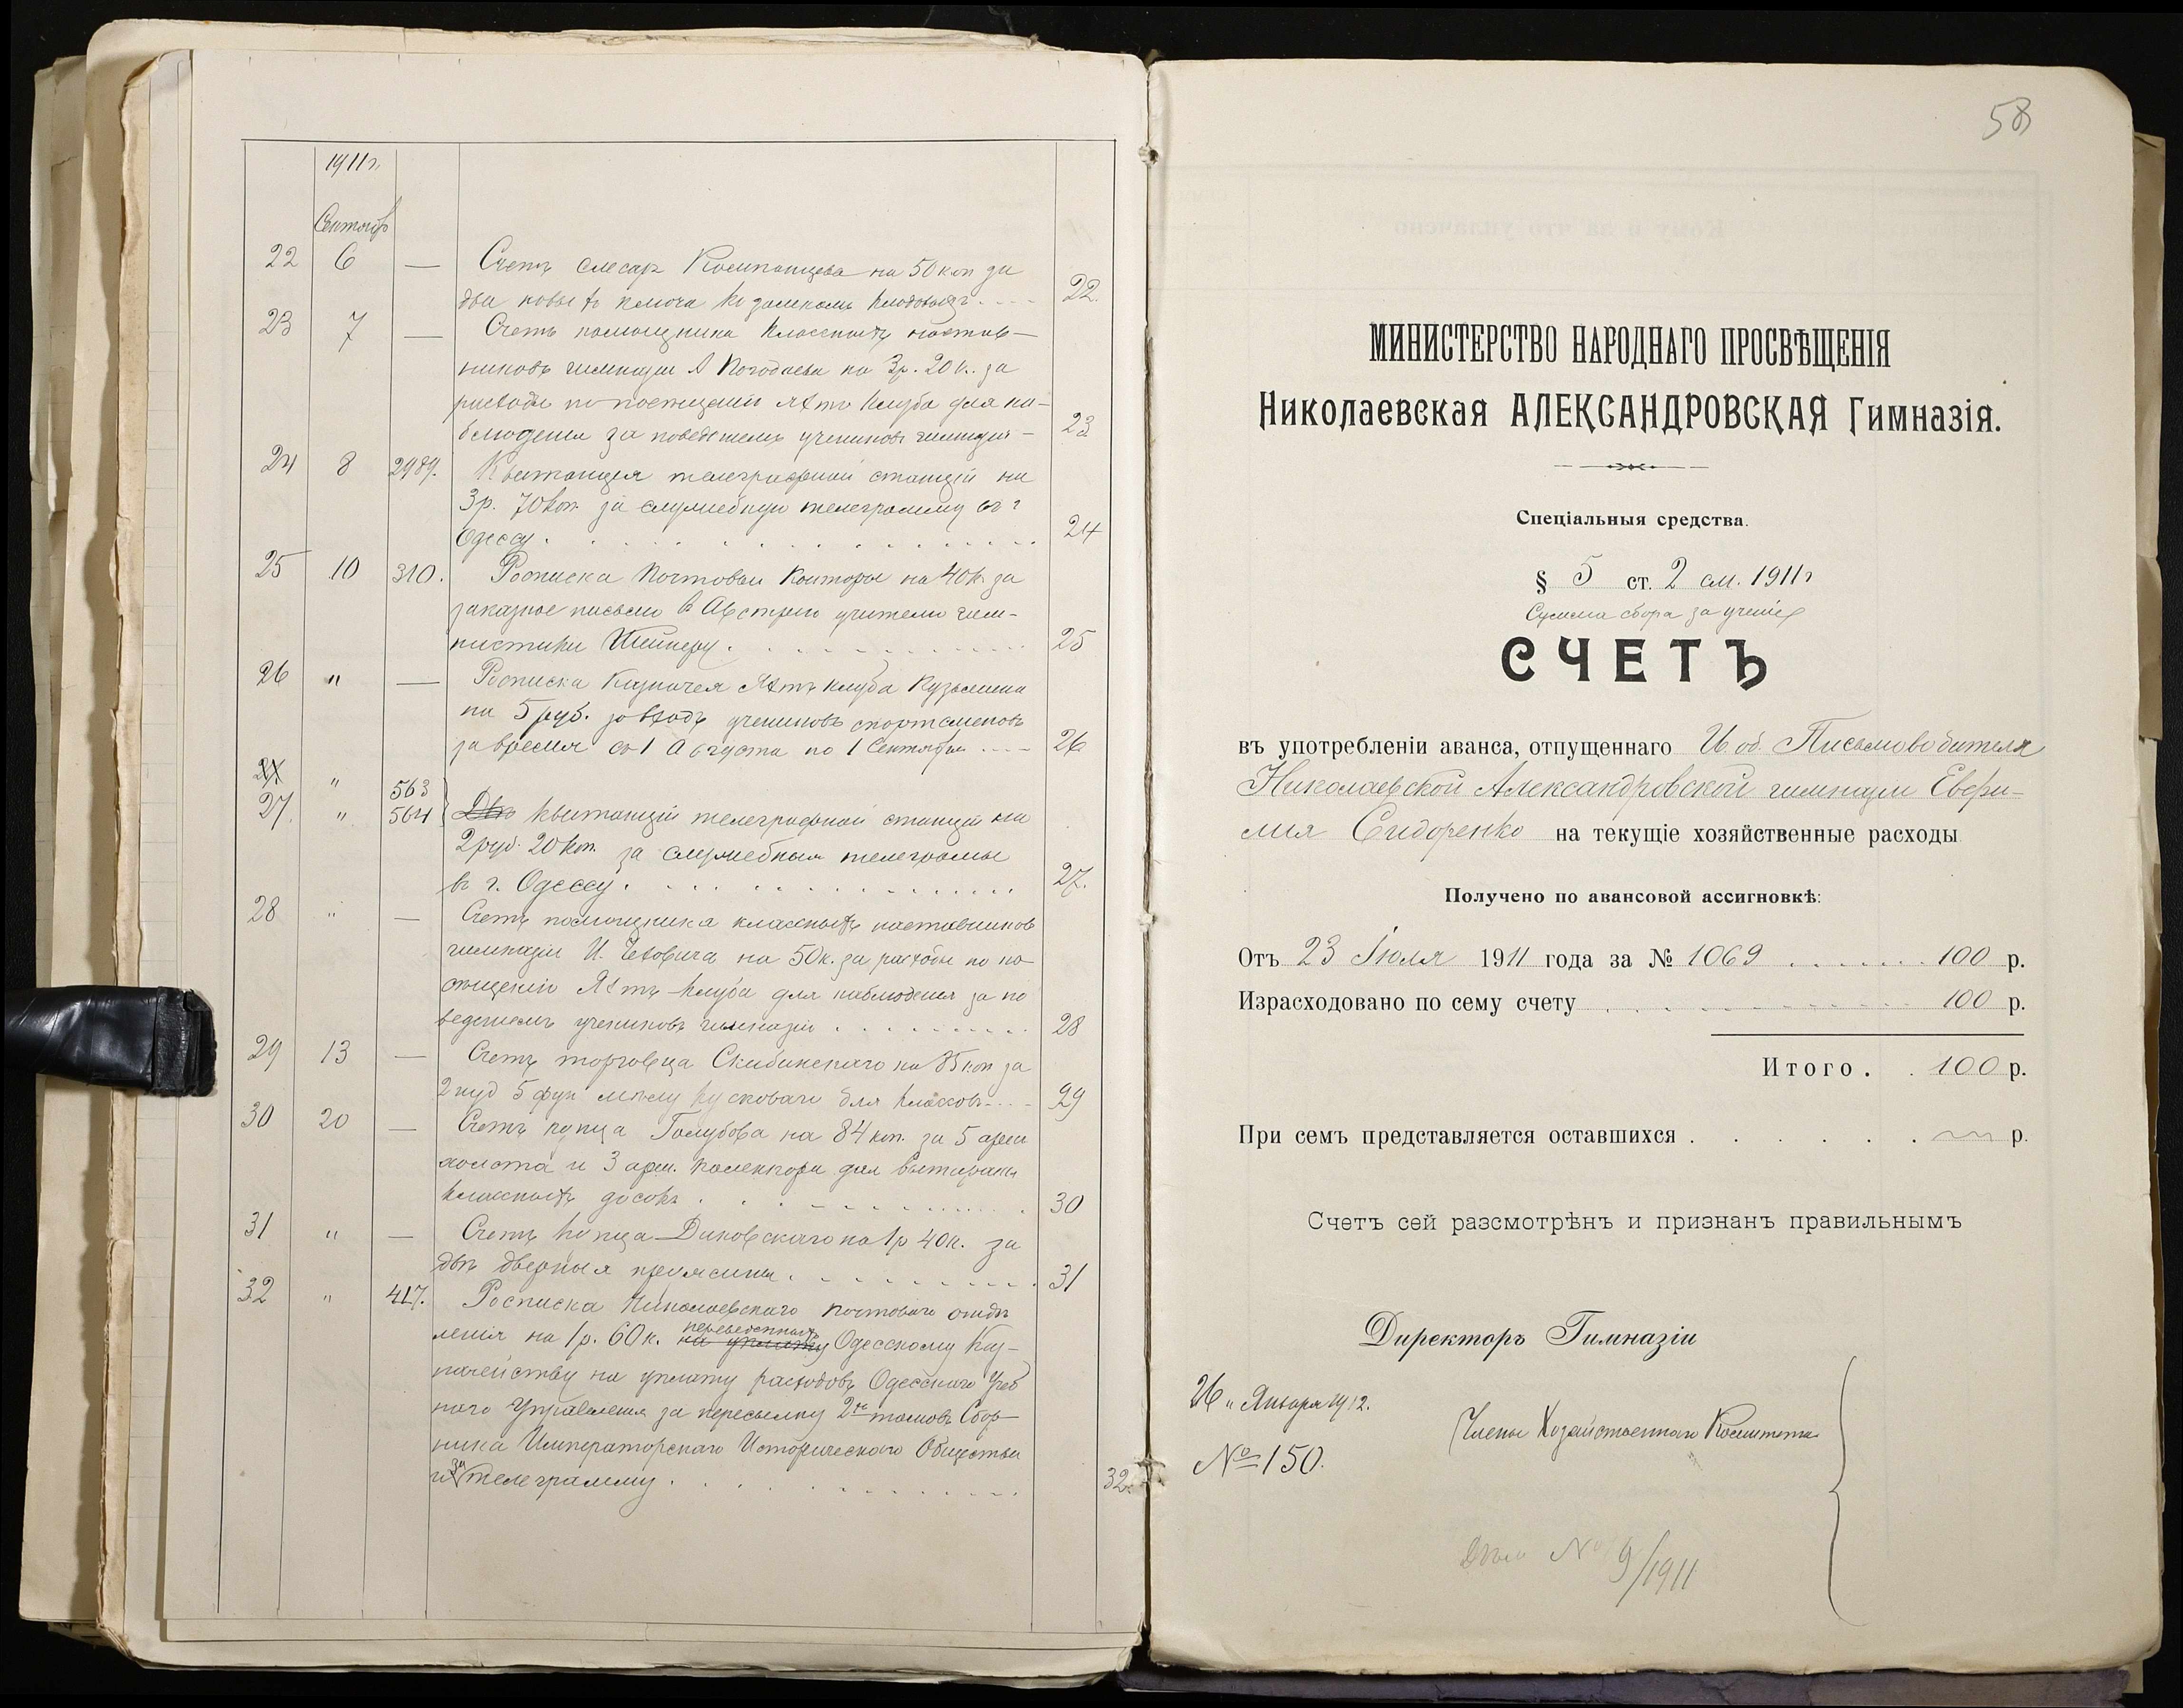 1911 г.
Сентябрь
22 6 — Счетъ слесаря на 50 коп за
два новыхъ ключа къ замкамъ 22.
23 7 — Счетъ помощника классныхъ настав-
никовъ гимназiи А Погодаева на 3р. 20 к. за
расходы по посещенiю Яхтъ Клуба для на-
блюденiя за поведенiемъ учениковъ гимназiи — 23
24 8 2989. Квитанцiя телеграфной станцiи на
3 р. 70 коп. за служебную телеграмму въ г
Одессу . . . . 24
25 10 310. Росписка Почтовой Конторы на 40 к. за
заказное письмо въ Австрiю учителю гим-
настики . . . . 25
26 " — Росписка Казначея Яхтъ клуба Кузьмина
на 5 руб. за входъ учениковъ спортсменовъ
за время съ 1 Августа по 1 Сентября . . . . 26
27 " 563
27. " 564 Двѣ квитанцiи телеграфной станцiи на
2 руб. 20 коп. за служебныя телеграмы
въ г. Одессу . . . . 27.
28 " — Счетъ помощника классныхъ наставниковъ
гимназiи И. Чеховича на 50 к. за расходы по по-
сѣщенiю Яхтъ-Клуба для наблюденiя за по
веденiемъ учениковъ гимназiи . . . . 28
29 13 — Счетъ торговца Скибинскаго на 85 коп за
2 пуд 5 фун мѣлу кусковаго для классовъ . . . . 29
30 20 — Счетъ купца Голубова на 84 коп. за 5 арш
холста и 3 арш. коленкора для вытиранiя
классныхъ досокъ . . . . 30
31 " — Счетъ купца Диковскаго на 1 р 40 к. за
двѣ дверныя пружины . . . . 31
32 " 417. Росписка Николаевскаго почтоваго отдѣ
ленiя на 1 р. 60 к. переведенныхъ на уплату Одесскому Каз-
начейству на уплату расходовъ Одесскаго Учеб
наго Управленiя за пересылку 2хъ томовъ Сбор-
ника Императорскаго Историческаго Общества
и за телеграмму . . . . 32.
58
МИНИСТЕРСТВО НАРОДНАГО ПРОСВѢЩЕНІЯ
Николаевская АЛЕКСАНДРОВСКАЯ Гимназія.
Спеціальныя средства.
§ 5 ст. 2 см. 1911 г
Сумма сбора за ученiе
СЧЕТЪ
въ употребленіи аванса, отпущеннаго И. об. Письмоводителя
Николаевской Александровской гимназiи Евфи-
мiя Сидоренко на текущіе хозяйственные расходы
Получено по авансовой ассигновкѣ:
Отъ 23 Iюля 1911 года за № 1069 . . . . 100 р.
Израсходовано по сему счету . . . . 100 р.
Итого . . 100 р.
При семъ представляется оставшихся . . . . . . р.
Счетъ сей разсмотрѣнъ и признанъ правильнымъ
Директоръ Гимназіи
26 " Января 1912.
Члены Хозяйственнаго Комитета
№ 150.
Дѣло № 9/1911